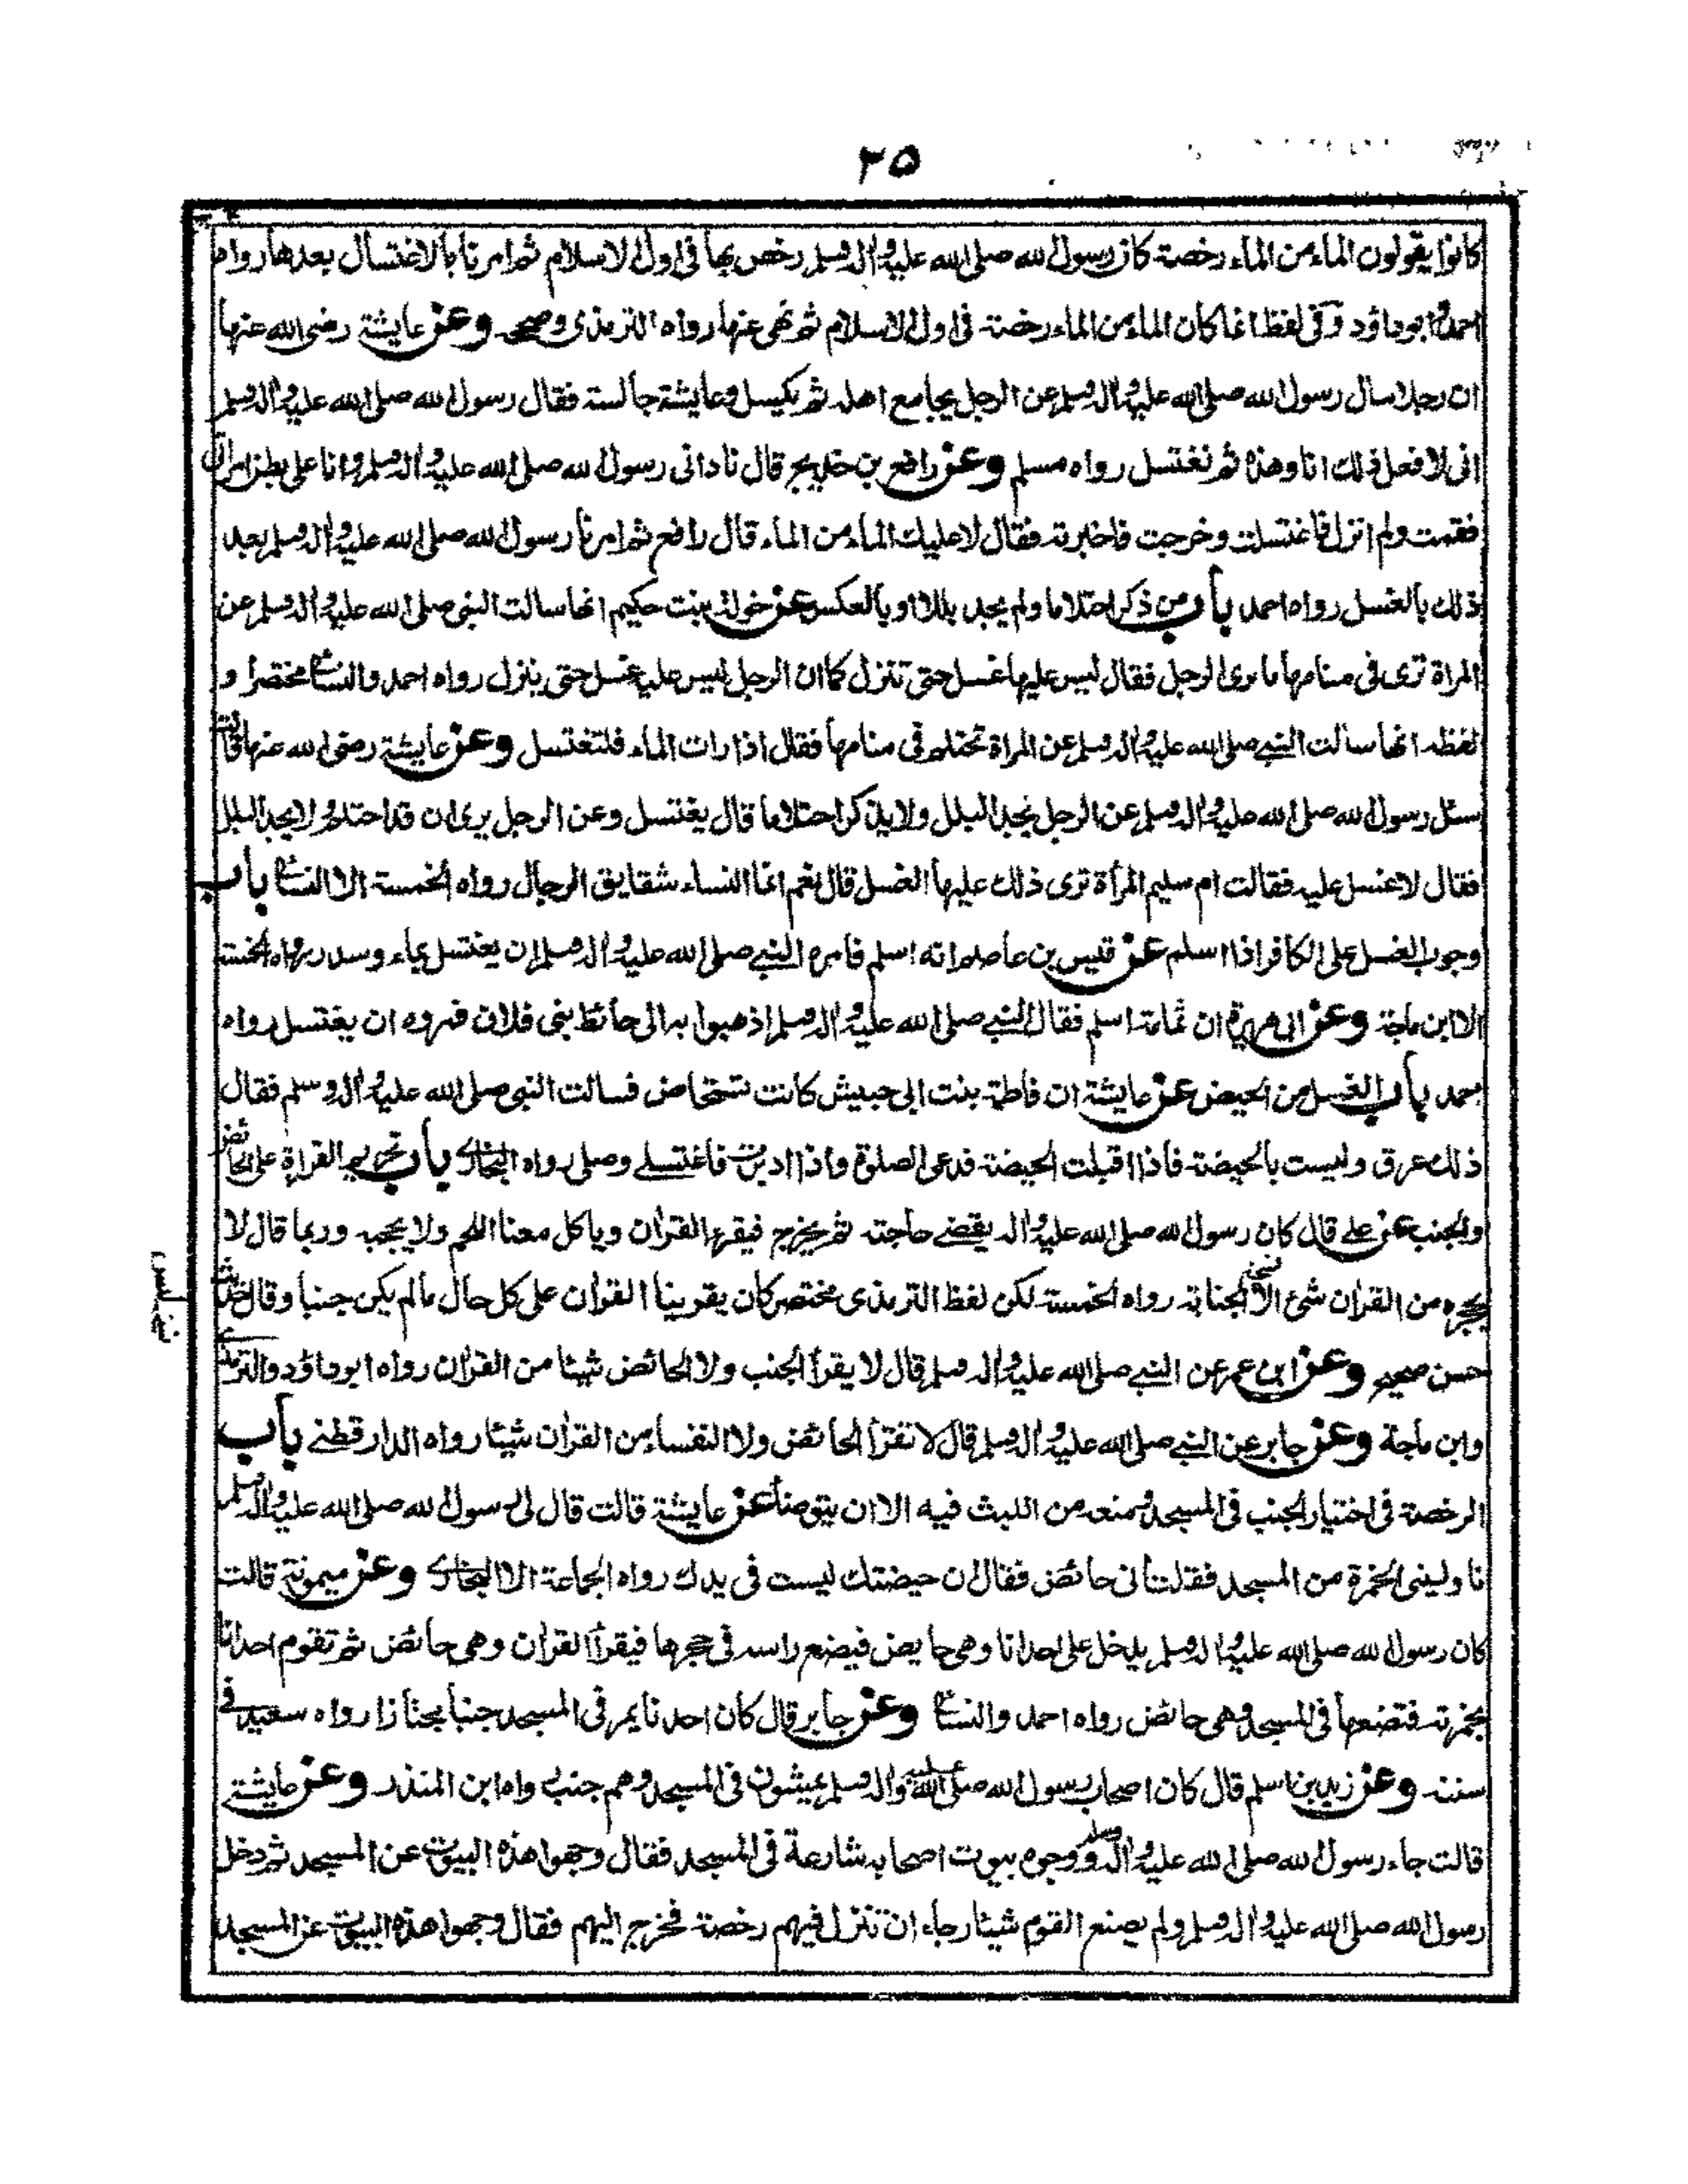 ٢٥
كانوا يقولون الماء من الماء رخصة كان رسول الله صلى الله عليه واله وسلم رخص بها فى اول الاسلام ثم امرنا بالاغتسال بعدها رواه
احمد وابو داؤد وفى لفظ انما كان الماء من الماء رخصة فى اول الاسلام ثم نهى عنها رواه الترمذى وصححه وعن عايشة رضى الله عنها
ان رجلا سال رسول الله صلى الله عليه واله وسلم عن الرجل يجامع اهله ثم يكسل وعايشة جالسة فقال رسول الله صلى الله عليه واله وسلم
انى لافعل ذلك انا وهذه ثم نغتسل رواه مسلم وعن رافع بن خديج قال نادانى رسول الله صلى الله عليه واله وسلم وانا على بطن امراتى
فقمت ولم انزل فاغتسلت وخرجت فاخبرته فقال لا عليك الماء من الماء قال رافع ثم امرنا رسول الله صلى الله عليه واله وسلم بعد
ذلك بالغسل رواه احمد باب من ذكر احتلاما ولم يجد بللا او بالعكس عن خولة بنت حكيم انها سالت النبى صلى الله عليه واله وسلم عن
المراة ترى فى منامها ما يرى الرجل فقال ليس عليها غسل حتى تنزل كما ان الرجل ليس عليه غسل حتى ينزل رواه احمد والنسائى مختصرا و
لفظه انها سالت النبى صلى الله عليه واله وسلم عن المراة تحتلم فى منامها فقال اذا رات الماء فلتغتسل وعن عايشة رضى الله عنها قالت
سئل رسول الله صلى الله عليه واله وسلم عن الرجل يجد البلل ولا يذكر احتلاما قال يغتسل وعن الرجل يرى ان قد احتلم ولا يجد البلل
فقال لا غسل عليه فقالت ام سليم المرأة ترى ذلك عليها الغسل قال نعم انما النساء شقايق الرجال رواه الخمسة الا النسائى باب
وجوب الغسل على الكافر اذا اسلم عن قيس بن عاصم انه اسلم فامره النبى صلى الله عليه واله وسلم ان يغتسل بماء وسدر رواه الخمسة
الا ابن ماجة وعن ابى هريرة ان ثمامة اسلم فقال النبى صلى الله عليه واله وسلم اذهبوا به الى حائط بنى فلان فمروه ان يغتسل رواه
احمد باب الغسل من الحيض عن عايشة ان فاطمة بنت ابى حبيش كانت تستحاض فسالت النبى صلى الله عليه واله وسلم فقال
ذلك عرق وليست بالحيضة فاذا اقبلت الحيضة فدعى الصلوة واذا ادبرت فاغتسلى وصلى رواه البخارى باب تحريم القراة على الحائض
والجنب عن على قال كان رسول الله صلى الله عليه واله يقضى حاجته ثم يخرج فيقرء القران وياكل معنا اللحم ولا يحجبه وربما قال لا
يحجزه من القران شئ الا الجنابة رواه الخمسة لكن لفظ الترمذى مختصر كان يقرينا القران على كل حال مالم يكن جنبا وقال حديث
حسن صحيح وعن ابن عمر عن النبى صلى الله عليه واله وسلم قال لا يقرأ الجنب ولا الحائض شيئا من القران رواه ابو داؤد والترمذى
وابن ماجة وعن جابر عن النبى صلى الله عليه واله وسلم قال لا تقرأ الحائض ولا النفساء من القران شيئا رواه الدار قطنى باب
الرخصة فى اختيار الجنب فى المسجد ومنعه من اللبث فيه الا ان يتوضأ عن عايشة قالت قال لى رسول الله صلى الله عليه واله وسلم
ناولينى الخمرة من المسجد فقلت انى حائض فقال ان حيضتك ليست فى يدك رواه الجماعة الا البخارى وعن ميمونة قالت
كان رسول الله صلى الله عليه واله وسلم يدخل على احدانا وهى حايض فيضع راسه فى حجرها فيقرأ القران وهى حائض ثم تقوم احدانا
بخمرته فتضعها فى المسجد وهى حائض رواه احمد والنسائى وعن جابر قال كان احدنا يمر فى المسجد جنبا مجتازا رواه سعيد فى
سننه وعن زيد بن اسلم قال كان اصحاب رسول الله صلى الله عليه واله وسلم يمشون فى المسجد وهم جنب رواه ابن المنذر وعن عايشة
قالت جاء رسول الله صلى الله عليه واله وسلم ووجوه بيوت اصحابه شارعة فى المسجد فقال وجهوا هذه البيوت عن المسجد ثم دخل
رسول الله صلى الله عليه واله وسلم ولم يصنع القوم شيئا رجاء ان تنزل فيهم رخصة فخرج اليهم فقال وجهوا هذه البيوت عن المسجد